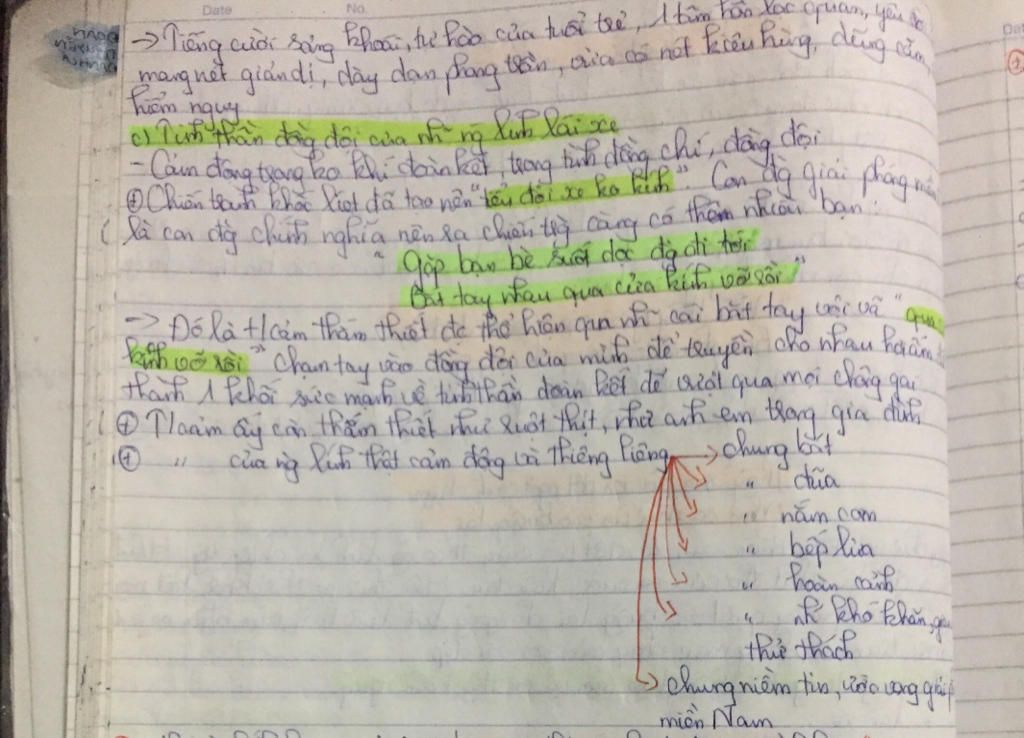 Date No.
→ Tiếng cười sảng khoái, tự hào của tuổi trẻ, 1 tâm hồn lạc quan, yêu
mang nét giản dị, dày dạn phong trần, vừa có nét kiêu hùng, dũng cảm,
hiểm nguy
c) Tinh thần đồng đội của nh~ ng lính lái xe
- Cảm động trong ko khí đoàn kết, trong tình đồng chí, đồng đội
⊕ Chiến tranh khốc liệt đã tạo nên "tiểu đội xe ko kính". Con đg giải phóng
là con đg chính nghĩa nên ra chiến trg càng có thêm nhiều bạn:
"Gặp bạn bè suốt dọc đg đi tới
Bắt tay nhau qua cửa kính vỡ rồi"
→ Đó là t/cảm thắm thiết đc thể hiện qua nh~ cái bắt tay vội vã "qua
kính vỡ rồi" chạm tay vào đồng đội của mình để truyền cho nhau hơi ấm
thành 1 khối sức mạnh về tinh thần đoàn kết để vượt qua mọi chông gai
⊕ T/cảm ấy còn thắm thiết như ruột thịt, như anh em trong gia đình
⊕ " của ng lính thật cảm động và thiêng liêng → chung bát
" đũa
" nắm cơm
" bếp lửa
" hoàn cảnh
" nh~ khó khăn,
thử thách
→ chung niềm tin, ước vọng giải
miền Nam